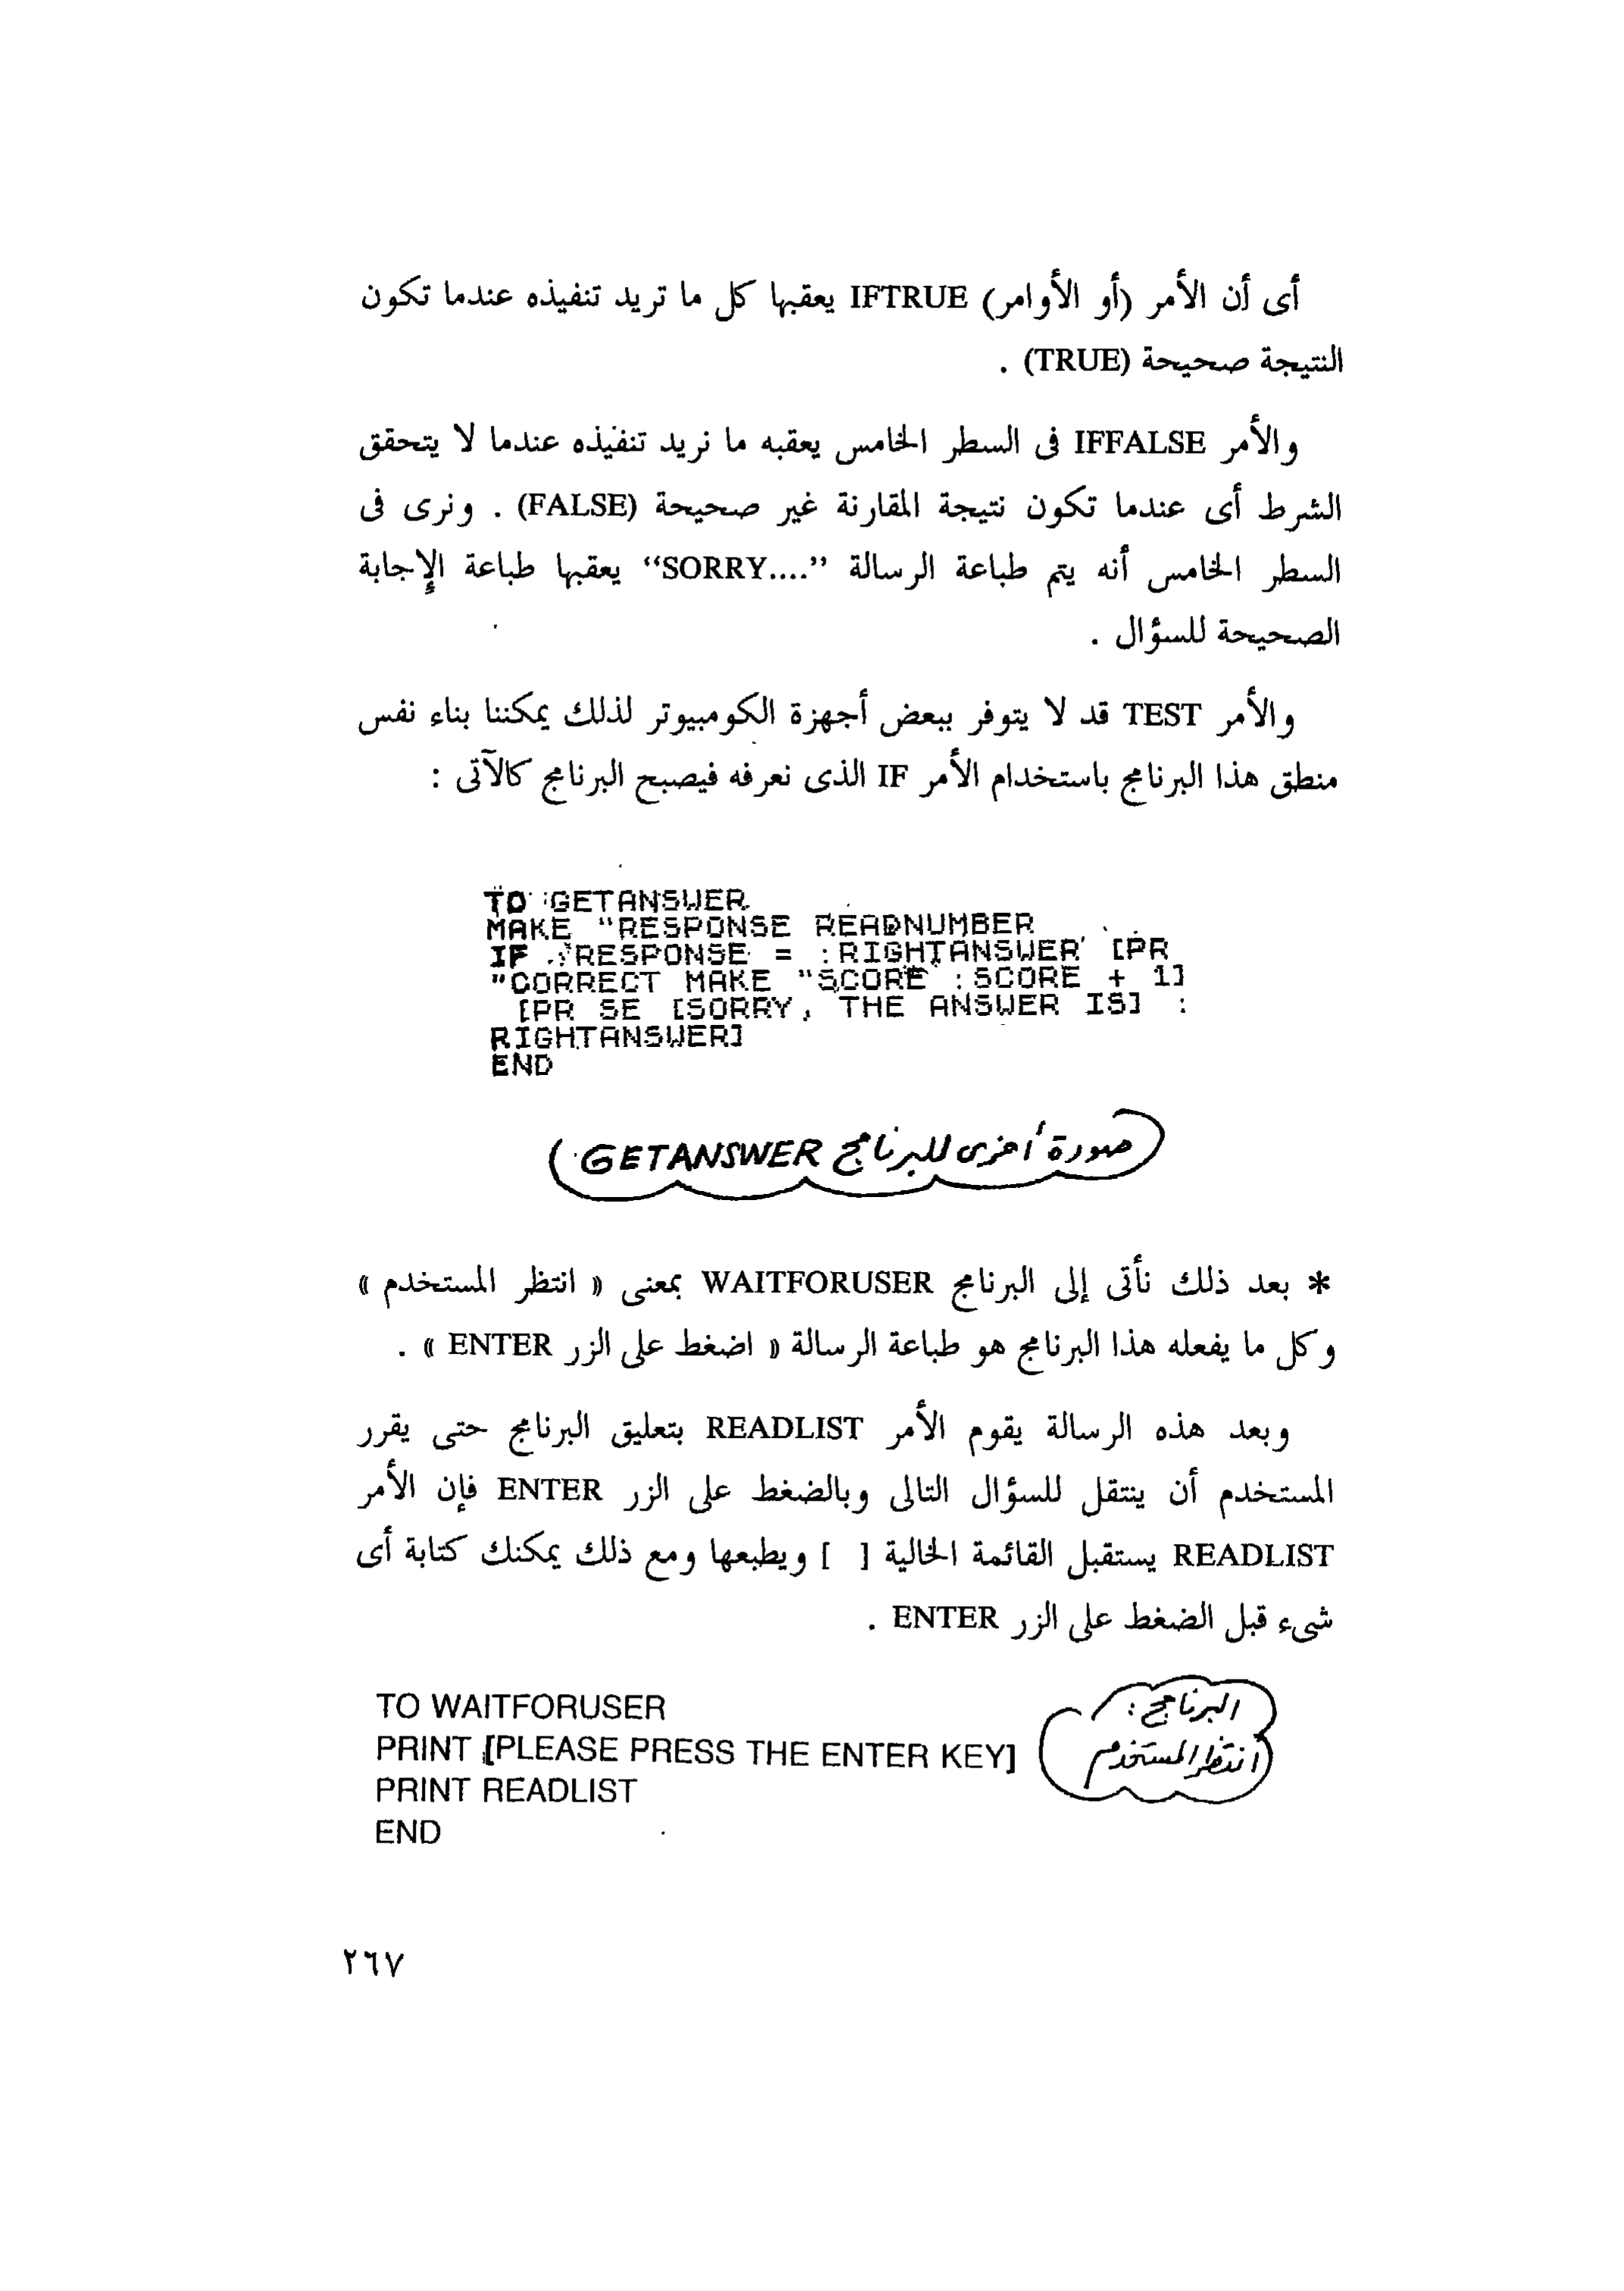 أى أن الأمر (أو الأوامر) IFTRUE يعقبها كل ما تريد تنفيذه عندما تكون
النتيجة صحيحة (TRUE) .
والأمر IFFALSE فى السطر الخامس يعقبه ما نريد تنفيذه عندما لا يتحقق
الشرط أى عندما تكون نتيجة المقارنة غير صحيحة (FALSE) . ونرى فى
السطر الخامس أنه يتم طباعة الرسالة “SORRY....” يعقبها طباعة الإجابة
الصحيحة للسؤال .
والأمر TEST قد لا يتوفر ببعض أجهزة الكومبيوتر لذلك يمكننا بناء نفس
منطق هذا البرنامج باستخدام الأمر IF الذى نعرفه فيصبح البرنامج كالآتى :
TO GETANSWER
MAKE "RESPONSE READNUMBER
IF :RESPONSE = :RIGHTANSWER [PR
"CORRECT MAKE "SCORE :SCORE + 1]
[PR SE [SORRY, THE ANSWER IS] :
RIGHTANSWER]
END
صورة أخرى للبرنامج GETANSWER
* بعد ذلك نأتى إلى البرنامج WAITFORUSER بمعنى « انتظر المستخدم »
وكل ما يفعله هذا البرنامج هو طباعة الرسالة « اضغط على الزر ENTER » .
وبعد هذه الرسالة يقوم الأمر READLIST بتعليق البرنامج حتى يقرر
المستخدم أن ينتقل للسؤال التالى وبالضغط على الزر ENTER فإن الأمر
READLIST يستقبل القائمة الخالية [ ] ويطبعها ومع ذلك يمكنك كتابة أى
شىء قبل الضغط على الزر ENTER .
البرنامج :
انتظر المستخدم
TO WAITFORUSER
PRINT [PLEASE PRESS THE ENTER KEY]
PRINT READLIST
END
٢٦٧